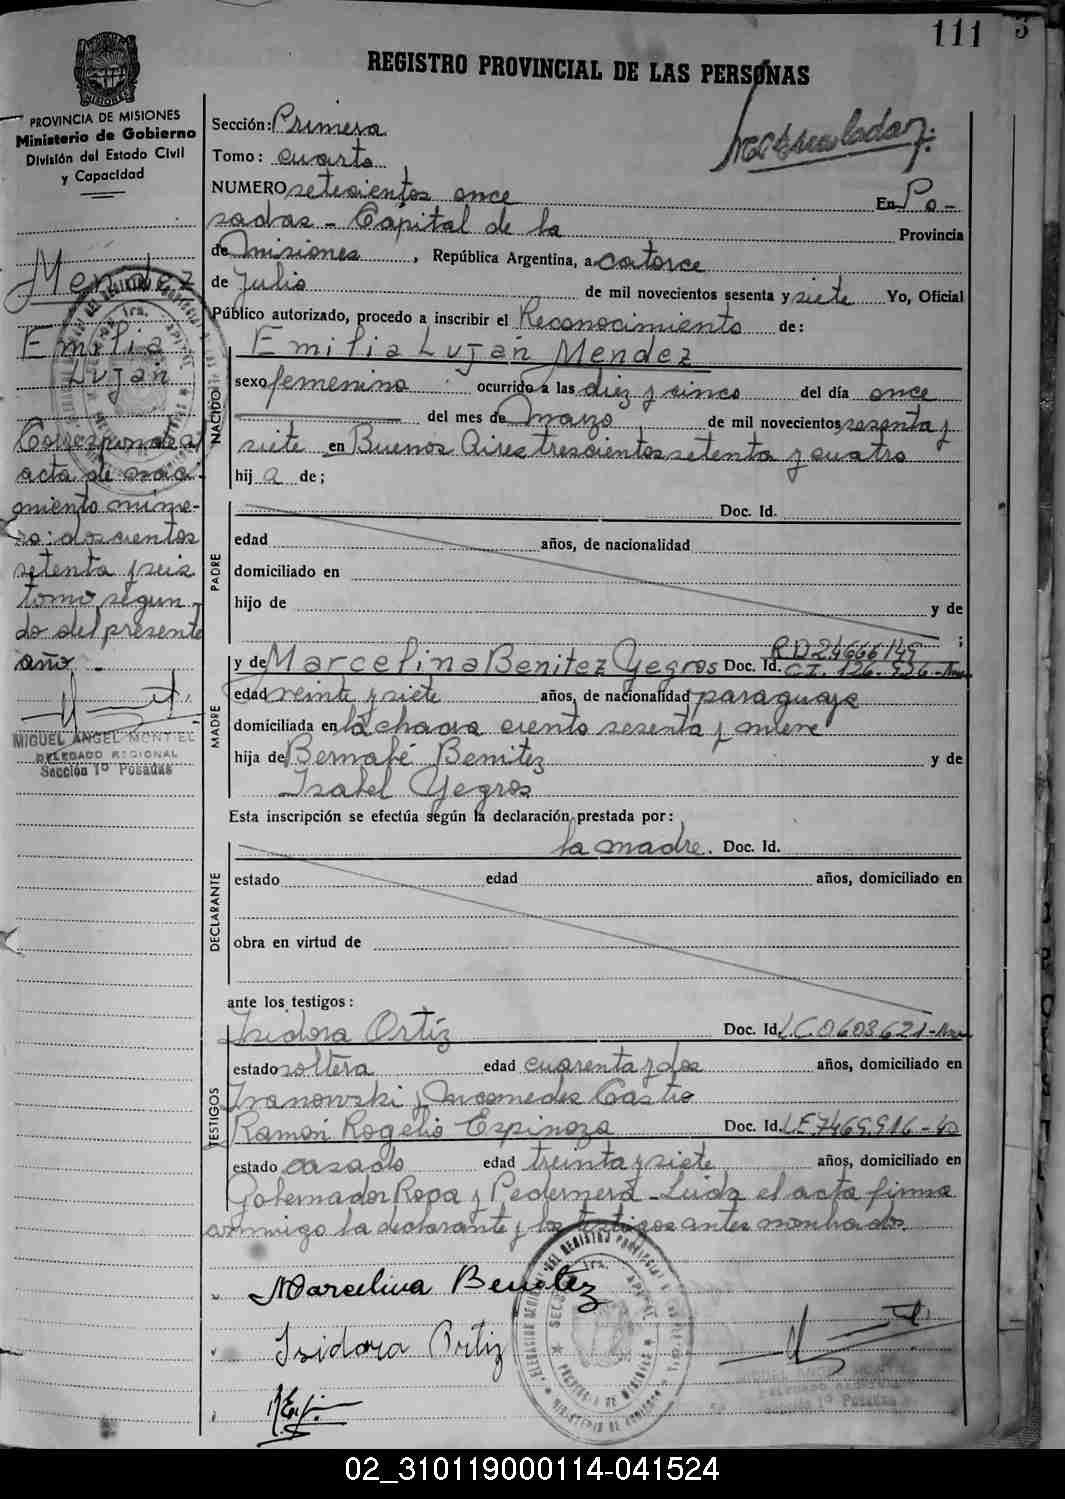 111
3
REGISTRO PROVINCIAL DE LAS PERSONAS
PROVINCIA DE MISIONES
Ministerio de Gobierno
División del Estado Civil
y Capacidad
Sección: Primera
Tomo: cuarto
NUMERO setecientos once En Po-
sadas - Capital de la Provincia
de Misiones, República Argentina, a catorce
de Julio de mil novecientos sesenta y siete Yo, Oficial
Público autorizado, procedo a inscribir el Reconocimiento de:
Mendez
Emilia
Luján
Corresponde al
acta de naci-
miento núme-
ro: doscientos
setenta y seis
tomo segun-
do del presente
año -
MIGUEL ANGEL MONTIEL
DELEGADO REGIONAL
Sección 1º Posadas
NACIDO
Emilia Luján Mendez
sexo femenino ocurrido a las diez y cinco del día once
del mes de Marzo de mil novecientos sesenta y
siete en Buenos Aires trescientos setenta y cuatro
hij a de;
PADRE
Doc. Id.
edad años, de nacionalidad
domiciliado en
hijo de y de
;
MADRE
RD 24666149
y de Marcelina Benitez Yegros Doc. Id. C.I. 126.926-
edad veinte y siete años, de nacionalidad paraguaya
domiciliada en la chacra ciento sesenta y nueve
hija de Bernabé Benitez y de
Isabel Yegros
Esta inscripción se efectúa según la declaración prestada por:
DECLARANTE
la madre. Doc. Id.
estado edad años, domiciliado en
obra en virtud de
ante los testigos:
TESTIGOS
Isidora Ortíz Doc. Id. L.C.0.603621-
estado soltera edad cuarenta y dos años, domiciliado en
Ivanowski y Nicomedes Castro
Ramón Rogelio Espinoza Doc. Id. L.E 7.469.916-
estado casado edad treinta y siete años, domiciliado en
Gobernador Roca y Pedernera - Leida el acta firma
conmigo la declarante y los testigos antes nombrados.
Marcelina Benitez
Isidora Ortiz
02_310119000114-041524